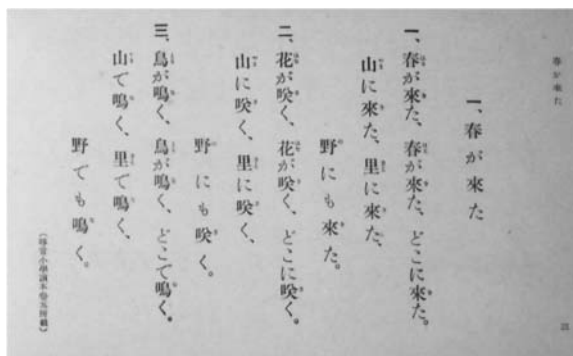 春が来た
一、春が来た
一、春が來た、春が來た、どこに來た。
山に來た、里に來た、
野にも來た。
二、花が咲く、花が咲く、どこに咲く。
山に咲く、里に咲く、
野にも咲く。
三、鳥が鳴く、鳥が鳴く、どこで鳴く。
山で鳴く、里で鳴く、
野でも鳴く。